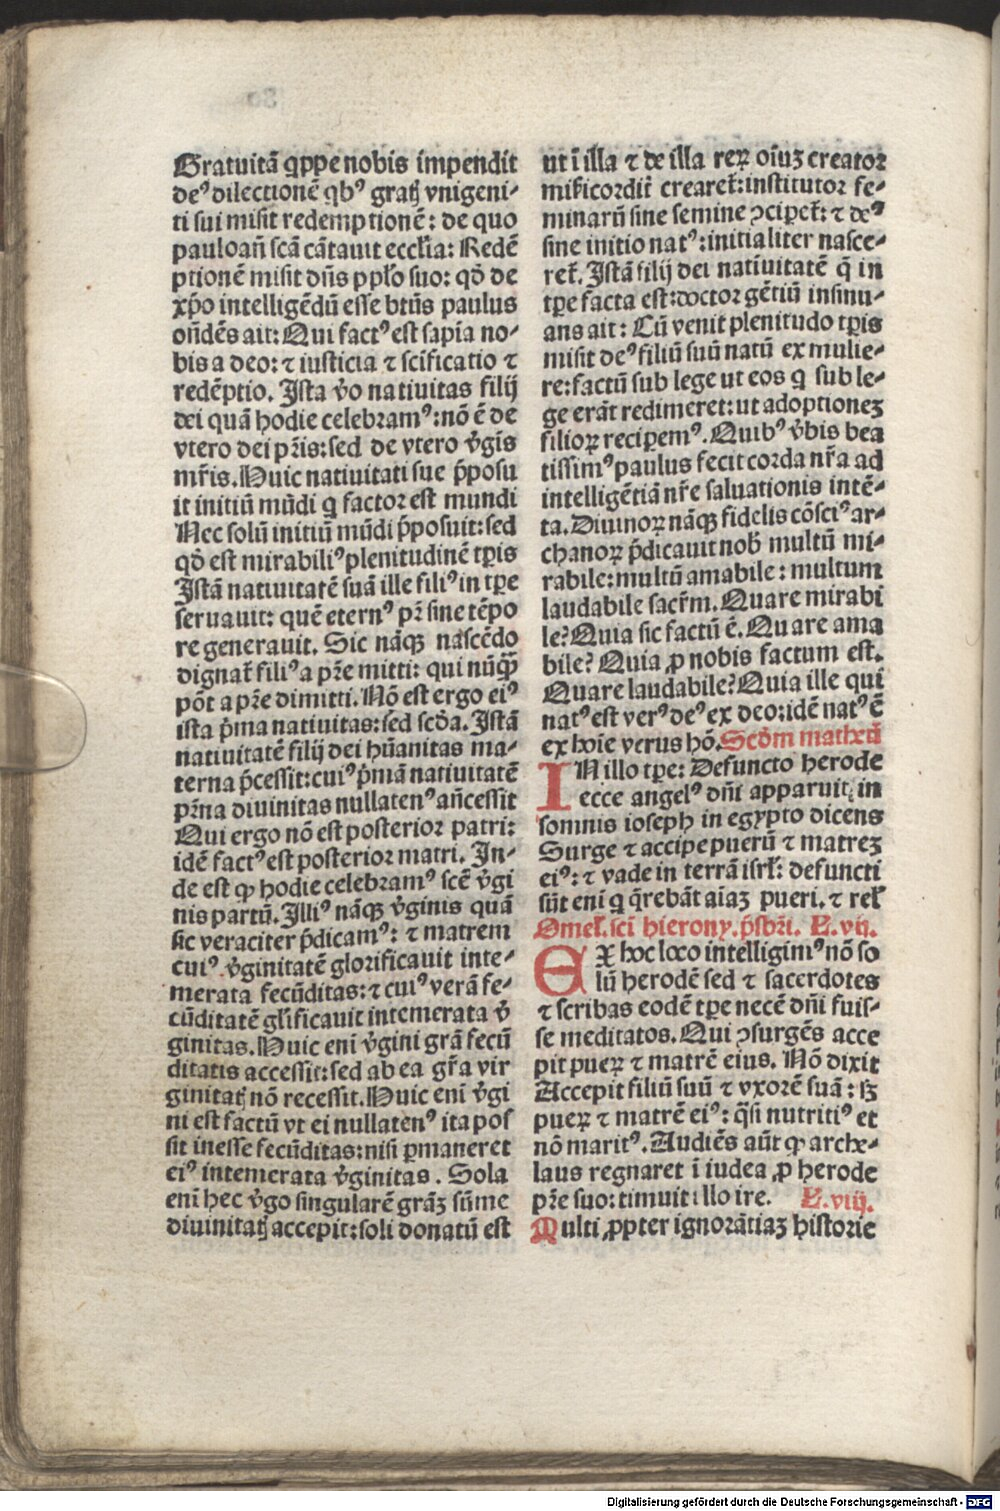 Gratuitā qppe nobis impendit
deꝰ dilectionē qbꝰ gratꝭ vnigeni-
ti sui misit redemptionē: de quo
pauloañ scā cātauit ecclīa: Redē
ptionē misit dn̄s ppl̄o suo: qd̓ de
xp̄o intelligēdū esse bt̄us paulus
on̄dēs ait: Qui factꝰ est sapīa no-
bis a deo: ⁊ iusticia ⁊ sc̄ificatio ⁊
redēptio. Ista v̓o natiuitas filij
dei quā hodie celebramꝰ: nō ē de
vtero dei pr̄is: sed de vtero v̓gīs
mr̄is. Huic natiuitati sue p̄posu
it initiū mūdi q factor est mundi
Nec solū initiū mūdi p̄posuit: sed
qd̓ est mirabiliꝰ plenitudinē tp̄is
Istā natiuitatē suā ille filiꝰ in tp̄e
seruauit: quē eternꝰ pr̄ sine tēpo
re generauit. Sic nāqꝫ nascēdo
dignat̄ filiꝰ a pr̄e mitti: qui nūqꝫ̄
pōt a pr̄e dimitti. Nō est ergo eiꝰ
ista p̄ma natiuitas: sed scd̓a. Istā
natiuitatē filij dei hūanitas ma-
terna p̄cessit: cuiꝰ p̄mā natiuitatē
pr̄na diuinitas nullatenꝰ an̄cessit
Qui ergo nō est posterior patri:
idē factꝰ est posterior matri. In-
de est ꝙ hodie celebramꝰ scē v̓gi
nis partū. Illiꝰ nāqꝫ v̓ginis quā
sic veraciter p̄dicamꝰ: ⁊ matrem
cuiꝰ v̓ginitatē glorificauit inte-
merata fecūditas: ⁊ cuiꝰ verā fe-
cūditatē gl̓ificauit intemerata v̓
ginitas. Huic enī v̓gini grā fecū
ditatis accessit: sed ab ea gr̄a vir
ginitatꝭ nō recessit. Huic enī v̓gi
ni est factū vt ei nullatenꝰ ita pos
sit inesse fecūditas: nisi ꝑmaneret
eiꝰ intemerata v̓ginitas. Sola
enī hec v̓go singularē grāꝫ sūme
diuinitatꝭ accepit: soli donatū est
ut ī illa ⁊ de illa reꝝ oīuꝫ creator
mīscordit̄ crearet̄: institutor fe-
minarū sine semine ↄciperet̄: ⁊ deꝰ
sine initio natꝰ: initialiter nasce-
ret̄. Istā filij dei natiuitatē q̄ in
tp̄e facta est: doctor gētiū insinu-
ans ait: Cū venit plenitudo tp̄is
misit deꝰ filiū suū natū ex mulie-
re: factū sub lege ut eos q sub le-
ge erāt redimeret: ut adoptionez
filioꝝ recipemꝰ. Quibꝰ v̓bis bea
tissimꝰ paulus fecit corda nr̄a ad
intelligētiā nr̄e saluationis intē-
ta. Diuinoꝝ nāqꝫ fidelis cōsciꝰ ar-
chanoꝝ p̄dicauit nob̓ multū mi-
rabile: multū amabile: multum
laudabile sacr̄m. Quare mirabi
le? Quia sic factū ē. Quare ama
bile? Quia ꝓ nobis factum est.
Quare laudabile? Quia ille qui
natꝰ est verꝰ deꝰ ex deo: idē natꝰ ē
ex hoīe verus hō. Scd̓m matheū
IN illo tp̄e: Defuncto herode
ecce angelꝰ dn̄i apparuit in
somnis ioseph in egypto dicens
Surge ⁊ accipe puerū ⁊ matrez
eiꝰ: ⁊ vade in terrā isrl̓: defuncti
sūt eni q q̄rebāt aīaꝫ pueri. ⁊ rel̓
Omel̓. sc̄i hierony. p̄sbr̄i. L. vij.
EX hoc loco intelligimꝰ nō so
lū herodē sed ⁊ sacerdotes
⁊ scribas eodē tp̄e necē dn̄i fuis-
se meditatos. Qui ↄsurgēs acce
pit pueꝝ ⁊ matrē eius. Nō dixit
Accepit filiū suū ⁊ vxorē suā: sꝫ
pueꝝ ⁊ matrē eiꝰ: q̄si nutritiꝰ et
nō maritꝰ. Audiēs aūt ꝙ arche-
laus regnaret ī iudea ꝓ herode
pr̄e suo: timuit illo ire. L. viij.
Multi ꝓpter ignorātiaꝫ historie
Digitalisierung gefördert durch die Deutsche Forschungsgemeinschaft - DFG